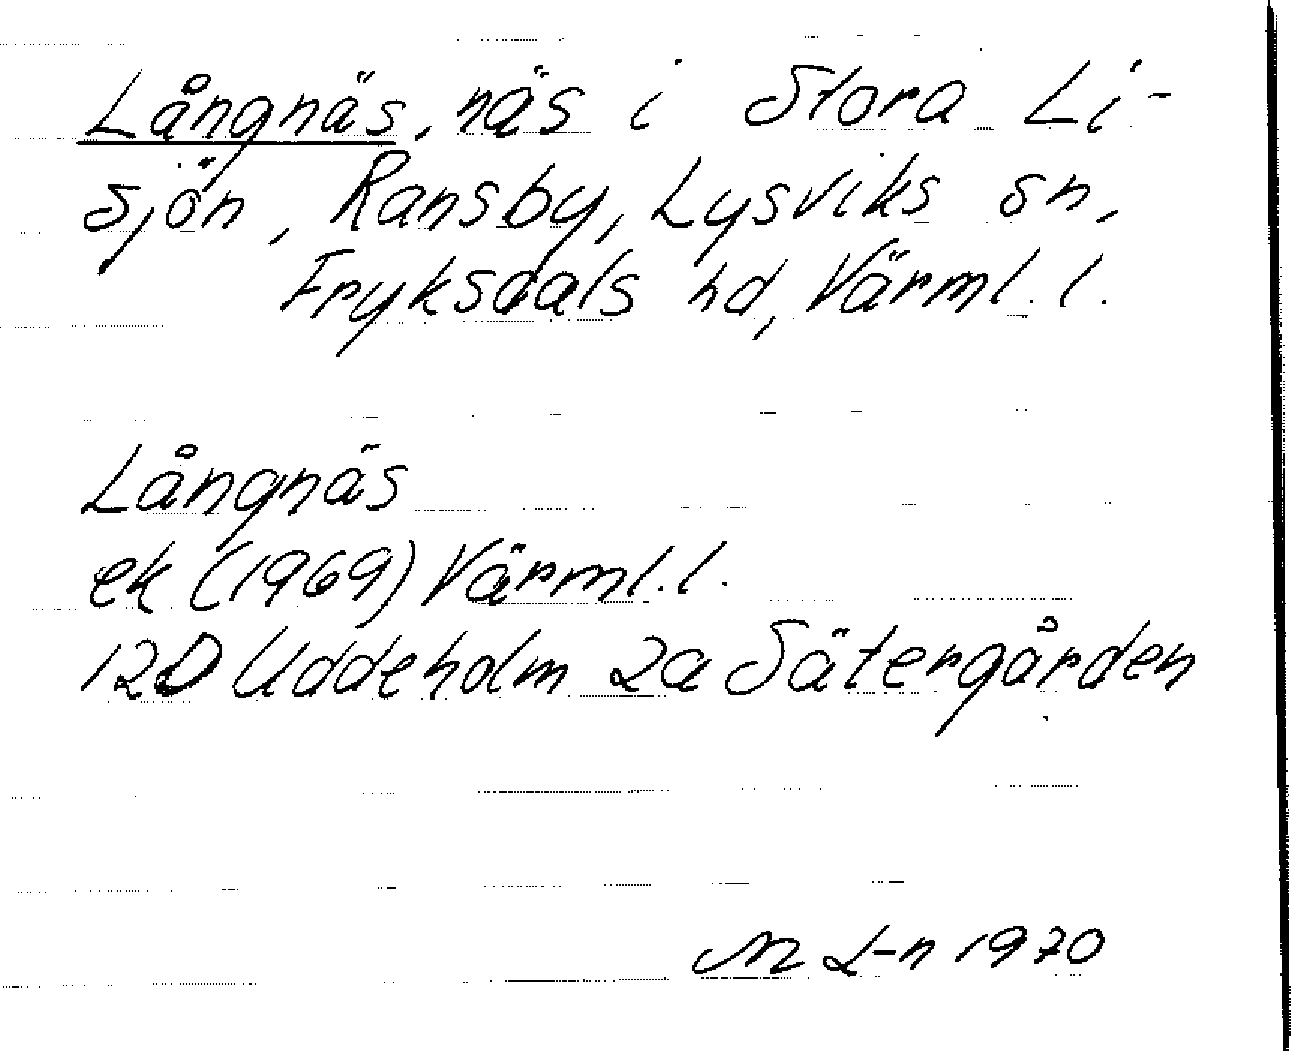 Långnäs, näs i Stora Li-
sjön, Ransby, Lysviks sn,
Fryksdals hd, Värml. l.
Långnäs
ek (1969) Värml. l.
12D Uddeholm 2a Sätergården
M L-n 1970